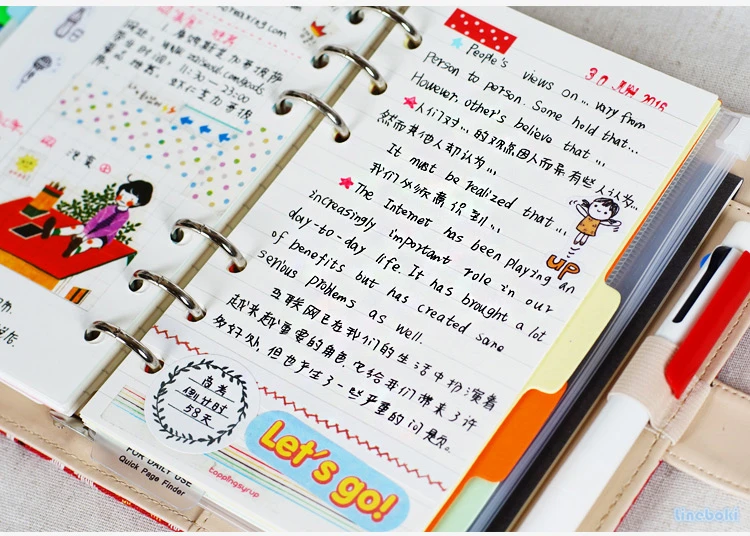 maxing.com
11:30 — 23:00
★ People's views on ... vary from
person to person. Some hold that...
However, other's believe that ...
★人们对...的观点因人而异.有些人认为...
然而其他人却认为...
It must be realized that...
我们必须意识到...
★The Internet has been playing an
increasingly important role in our
day-to-day life. It has brought a lot
of benefits but has created some
serious problems as well.
互联网已在我们的生活中扮演着
越来越重要的角色.它给我们带来了许
多好处,但也产生了一些严重的问题.
30 JUN 2015
UP
高考
倒计时
58天
Let's go!
toppingsyrup
FOR DAILY USE
Quick Page Finder
lineboki